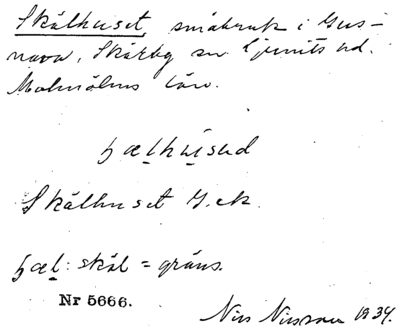 Skälhuset, småbruk i Gus-
nava, Skårby sn Ljunits hd.
Malmöhus län.
ʃælhu̇sɘd
Skälhuset G.ek.
ʃæl: skäl = gräns.
Nr 5666.
Nils Nilsson 1934.